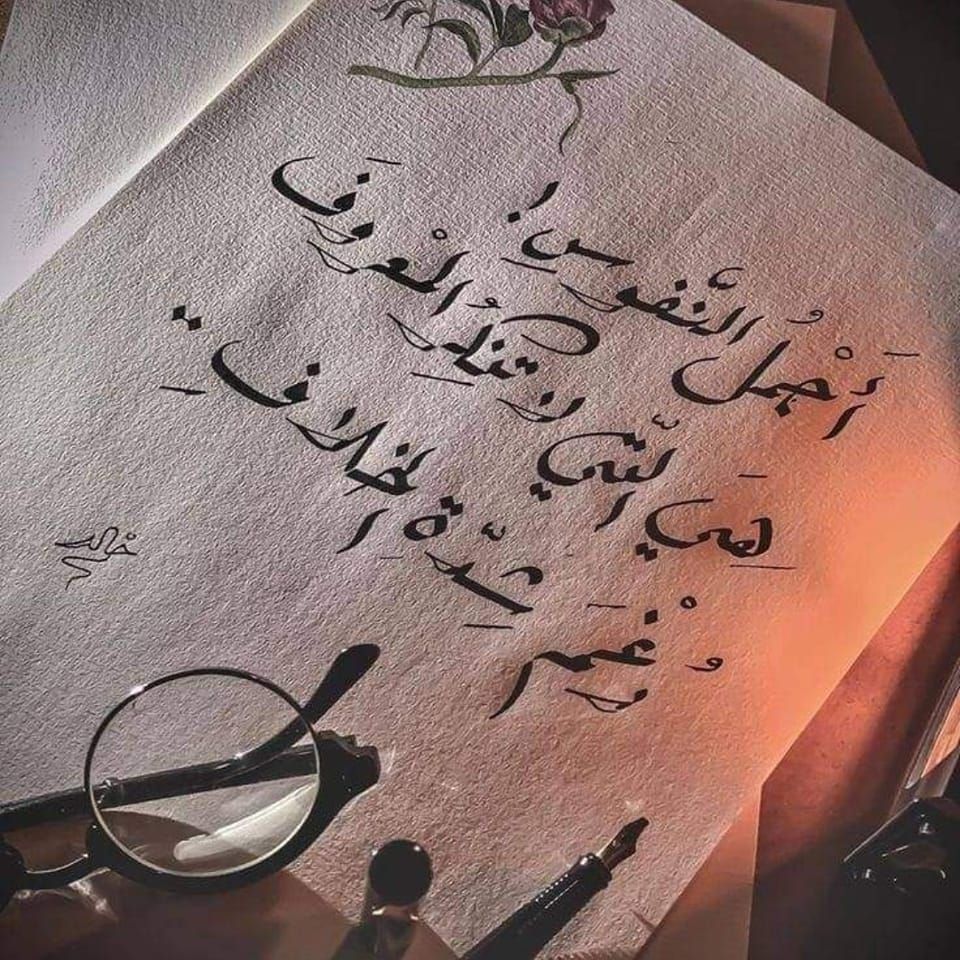 أَجْمَلُ النُّفوسِ :
هِيَ الَّتي لا تنكِرُ المعْروفَ
رُغْمَ شِدَّةِ الخلافِ ..
خالد